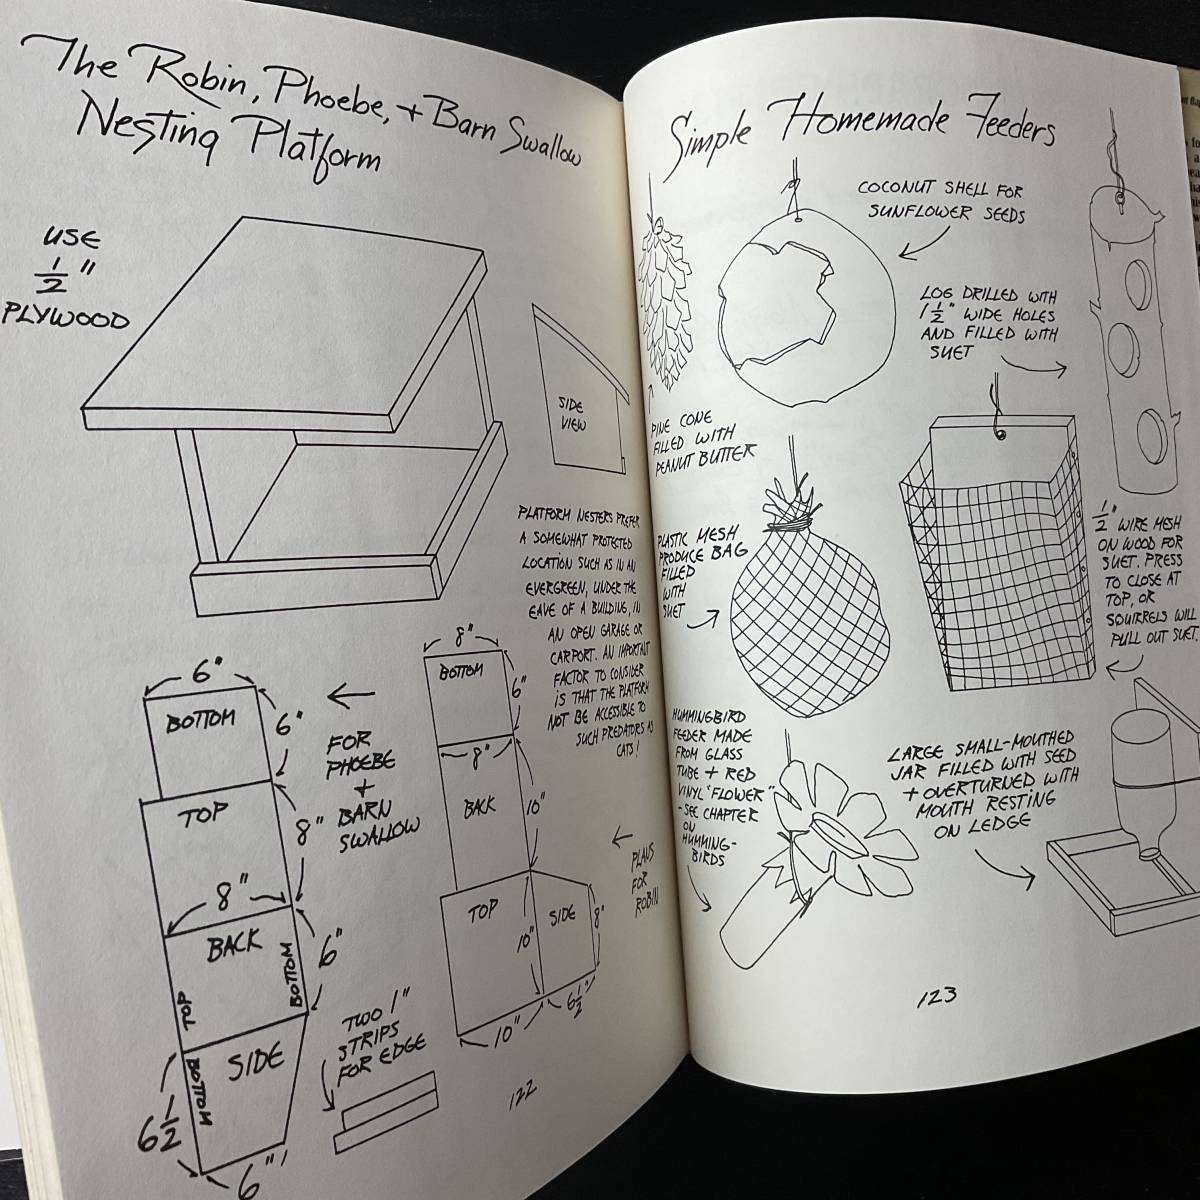 The Robin, Phoebe, + Barn Swallow
Nesting Platform
USE
1/2"
PLYWOOD
SIDE
VIEW
PLATFORM NESTERS PREFER
A SOMEWHAT PROTECTED
LOCATION SUCH AS IN AN
EVERGREEN, UNDER THE
EAVE OF A BUILDING, IN
AN OPEN GARAGE OR
CARPORT. AN IMPORTANT
FACTOR TO CONSIDER
IS THAT THE PLATFORM
NOT BE ACCESSIBLE TO
SUCH PREDATORS AS
CATS!
6"
BOTTOM
6"
TOP
8"
8"
BACK
TOP
BOTTOM
6"
BOTTOM
SIDE
6 1/2
6"
FOR
PHOEBE
+
BARN
SWALLOW
TWO 1"
STRIPS
FOR EDGE
8"
BOTTOM
6"
8"
BACK
10"
TOP
10"
SIDE
8"
10"
6 1/2"
PLANS
FOR
ROBIN
122
Simple Homemade Feeders
COCONUT SHELL FOR
SUNFLOWER SEEDS
LOG DRILLED WITH
1 1/2" WIDE HOLES
AND FILLED WITH
SUET
PINE CONE
FILLED WITH
PEANUT BUTTER
PLASTIC MESH
PRODUCE BAG
FILLED
WITH
SUET
1/2" WIRE MESH
ON WOOD FOR
SUET. PRESS
TO CLOSE AT
TOP, OR
SQUIRRELS WILL
PULL OUT SUET.
HUMMINGBIRD
FEEDER MADE
FROM GLASS
TUBE + RED
VINYL "FLOWER"
-SEE CHAPTER
ON
HUMMING-
BIRDS
LARGE SMALL-MOUTHED
JAR FILLED WITH SEED
+ OVERTURNED WITH
MOUTH RESTING
ON LEDGE
123